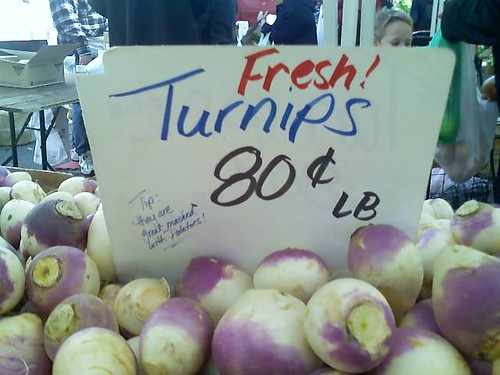 Fresh!
Turnips
80¢
LB
Tip:
they are
great mashed
with potatoes!